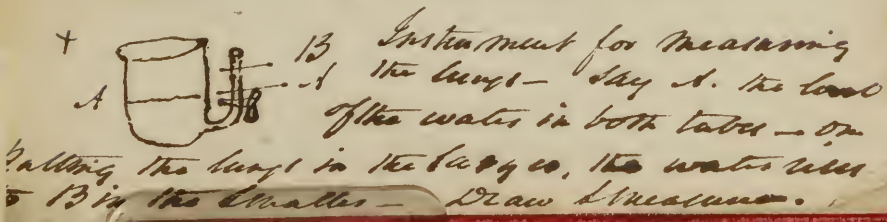 + B Instrument for measuring
A A the lungs — Say A. the level
B of the water in both tubes — on
Putting the lungs in the larger, the water rises
to B in the smaller — Draw & measure.